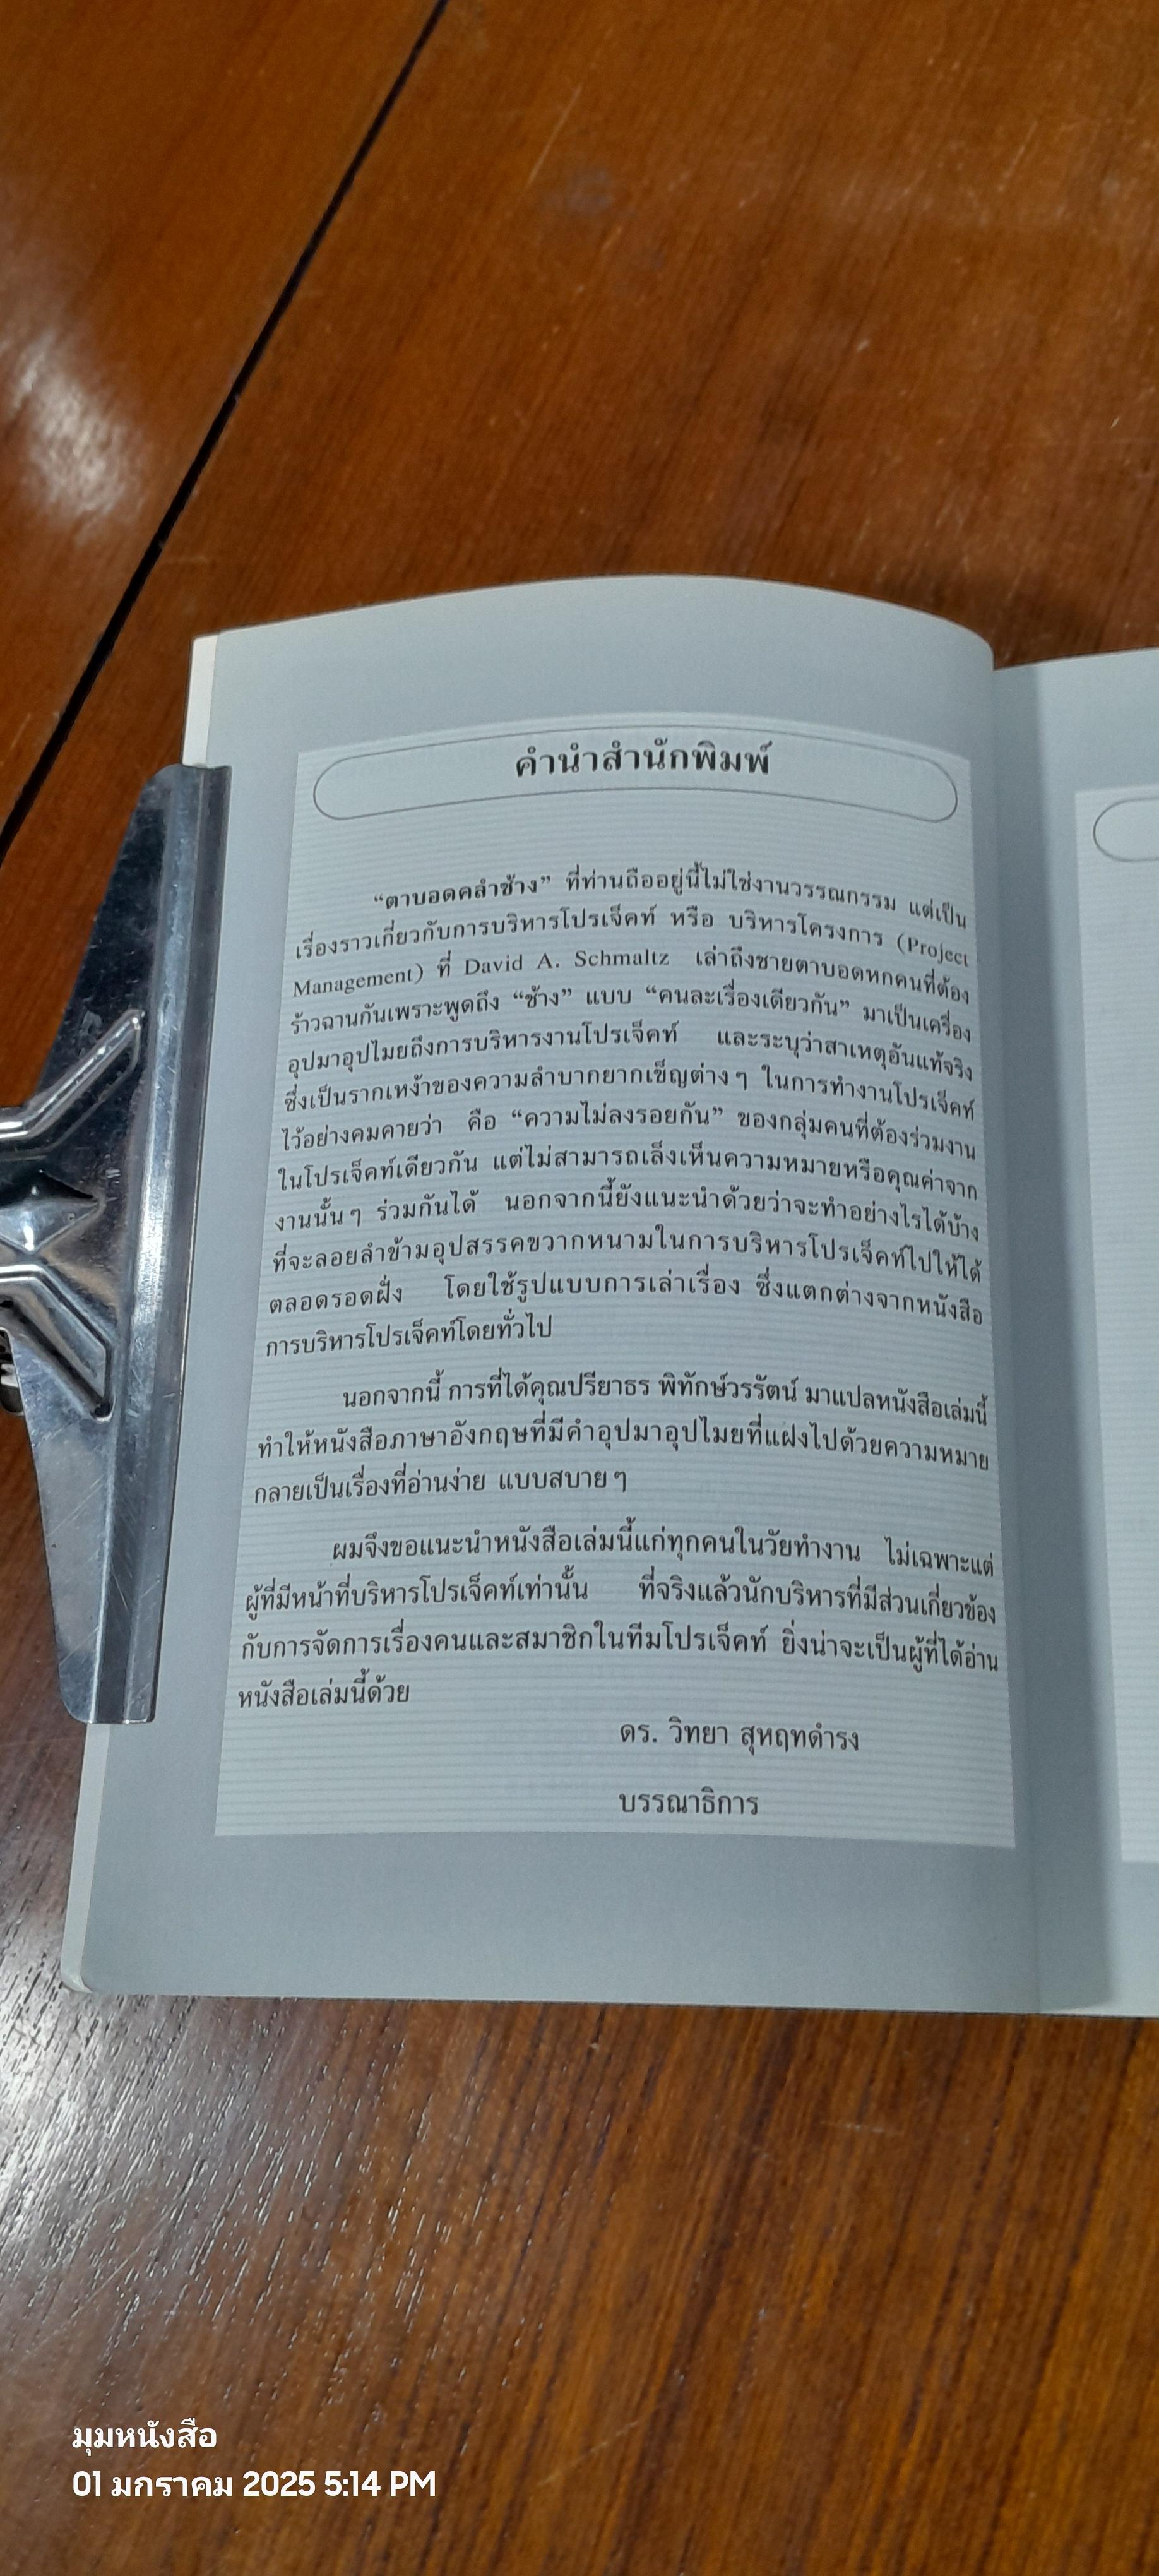 คำนำสำนักพิมพ์
“ตาบอดคลำช้าง” ที่ท่านถืออยู่นี้ไม่ใช่งานวรรณกรรม แต่เป็น
เรื่องราวเกี่ยวกับการบริหารโปรเจ็คท์ หรือ บริหารโครงการ (Project
Management) ที่ David A. Schmaltz เล่าถึงชายตาบอดหกคนที่ต้อง
ร้าวฉานกันเพราะพูดถึง “ช้าง” แบบ “คนละเรื่องเดียวกัน” มาเป็นเครื่อง
อุปมาอุปไมยถึงการบริหารงานโปรเจ็คท์ และระบุว่าสาเหตุอันแท้จริง
ซึ่งเป็นรากเหง้าของความลำบากยากเข็ญต่างๆ ในการทำงานโปรเจ็คท์
ไว้อย่างคมคายว่า คือ “ความไม่ลงรอยกัน” ของกลุ่มคนที่ต้องร่วมงาน
ในโปรเจ็คท์เดียวกัน แต่ไม่สามารถเล็งเห็นความหมายหรือคุณค่าจาก
งานนั้นๆ ร่วมกันได้ นอกจากนี้ยังแนะนำด้วยว่าจะทำอย่างไรได้บ้าง
ที่จะลอยลำข้ามอุปสรรคขวากหนามในการบริหารโปรเจ็คท์ไปให้ได้
ตลอดรอดฝั่ง โดยใช้รูปแบบการเล่าเรื่อง ซึ่งแตกต่างจากหนังสือ
การบริหารโปรเจ็คท์โดยทั่วไป
นอกจากนี้ การที่ได้คุณปรียาธร พิทักษ์วรรัตน์ มาแปลหนังสือเล่มนี้
ทำให้หนังสือภาษาอังกฤษที่มีคำอุปมาอุปไมยที่แฝงไปด้วยความหมาย
กลายเป็นเรื่องที่อ่านง่าย แบบสบายๆ
ผมจึงขอแนะนำหนังสือเล่มนี้แก่ทุกคนในวัยทำงาน ไม่เฉพาะแต่
ผู้ที่มีหน้าที่บริหารโปรเจ็คท์เท่านั้น ที่จริงแล้วนักบริหารที่มีส่วนเกี่ยวข้อง
กับการจัดการเรื่องคนและสมาชิกในทีมโปรเจ็คท์ ยิ่งน่าจะเป็นผู้ที่ได้อ่าน
หนังสือเล่มนี้ด้วย
ดร. วิทยา สุหฤทดำรง
บรรณาธิการ
มุมหนังสือ
01 มกราคม 2025 5:14 PM